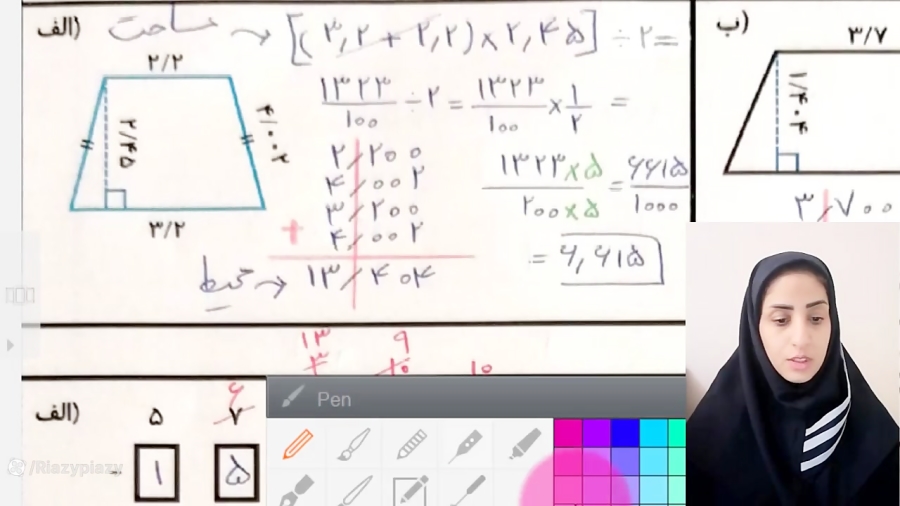 الف) مساحت → [(۳,۲ + ۲,۲) × ۲,۴۵] ÷ ۲ =
۲/۲
۲/۴۵
۴/۰۰۲
۳/۲
۱۳۲۳/۱۰۰ ÷ ۲ = ۱۳۲۳/۱۰۰ × ۱/۲ =
۱۳۲۳×۵/۲۰۰×۵ = ۶۶۱۵/۱۰۰۰
= ۶,۶۱۵
۲/۲۰۰
۴/۰۰۲
۳/۲۰۰
+ ۴/۰۰۲
محیط → ۱۳/۴۰۴
ب)
۳/۷
۱/۴۰۴
۳/۷۰۰
۱۳ ۹
۳ ۱۰ ۱۰
۶
الف) ۵ ۷
۱ ۵
Pen
/Riazypiazy